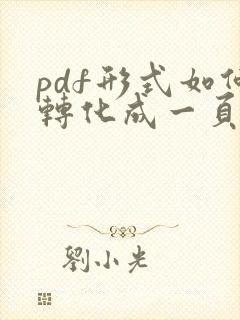 pdf形式如何
轉化成一頁
劉小光